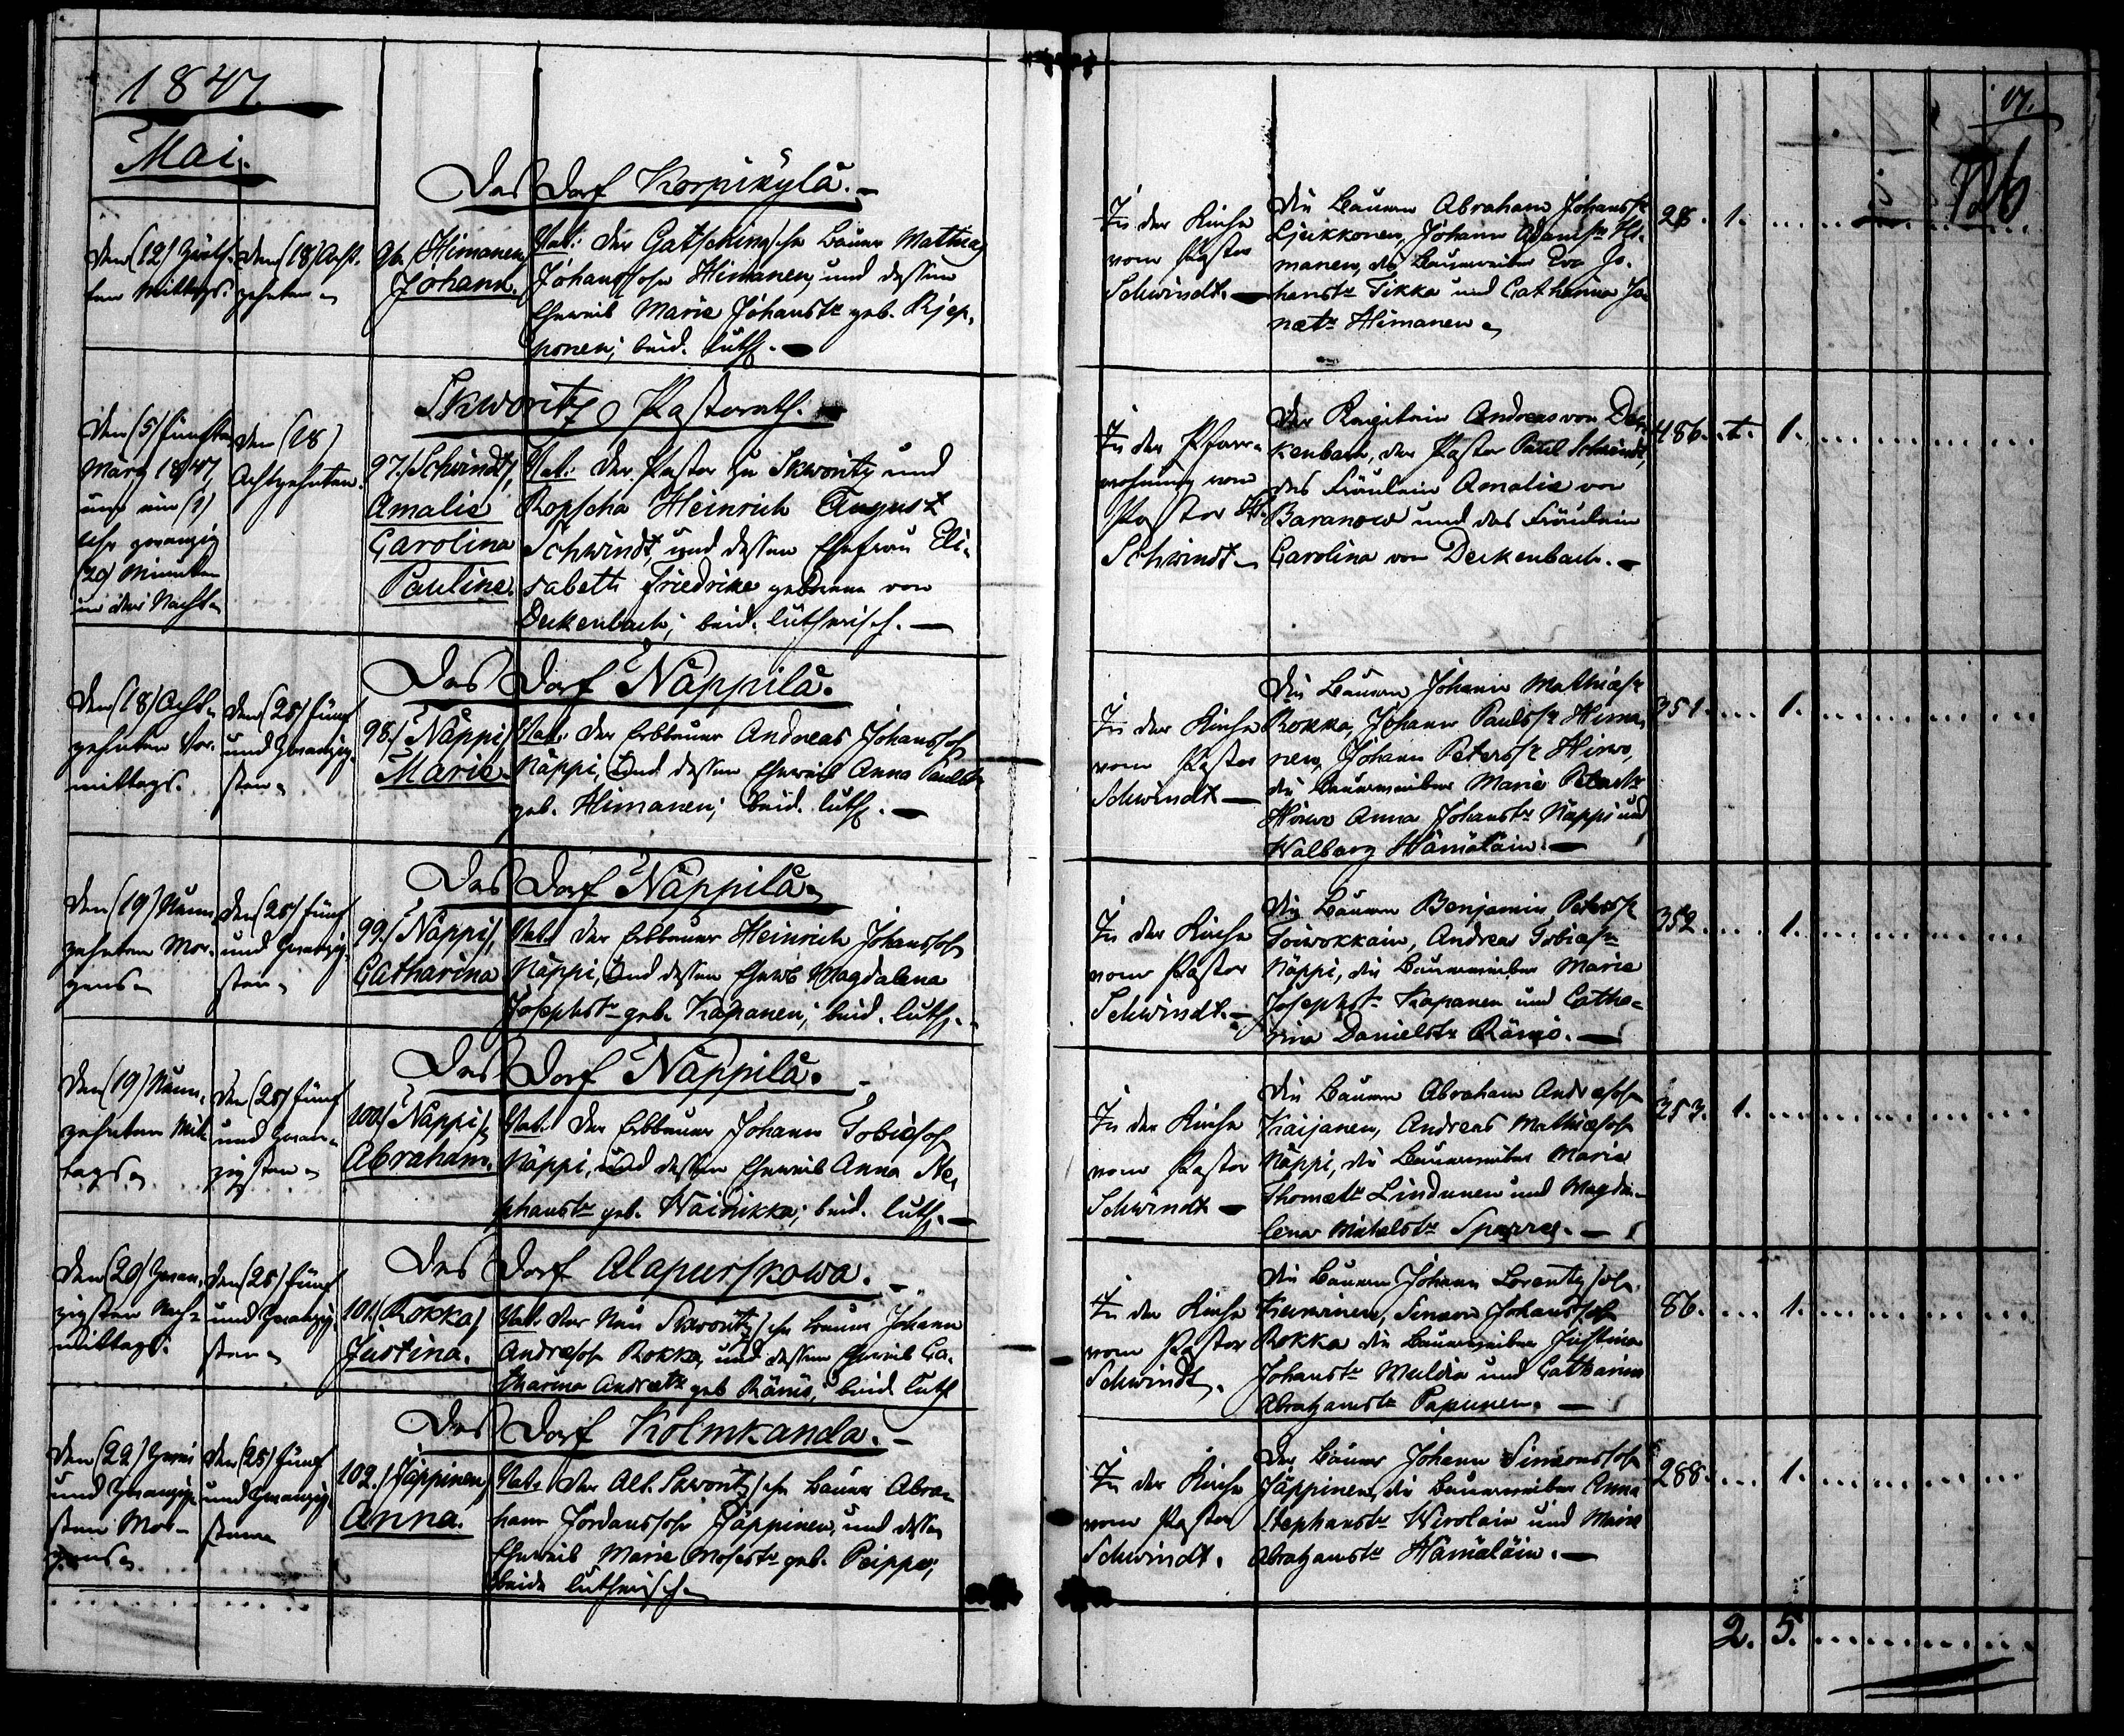 1847.
Mai.
Das Dorf Korpikylä.
Den (12) Zwölf-
ten Mittags.
Den (18) Acht-
zehnten
96./ Himanen,
Johann.
Vat: Der Gatschinasche Bauer Mathias
Johannssohn Himanen, und dessen
Eheweib Marie Johannstr geb. Kjep-
ponen; beid. luth.
In der Kirche
vom Pastor
Schwindt.
Die Bauern Abraham Johannss.
Ljeikkonen, Johann Adamss. Hi-
manen, die Bauerweiber Eva Jo-
hanstr Tikka und Catharina Jo-
naetr Himanen
28. 1.
17.
126
Skworitz Pastorath.
Den (5) fünften
März 1847,
um ein (1)
Uhr zwanzig
(20) Minuten
in der Nacht
Den (18)
Achtzehnten.
97./ Schwindt,
Amalie
Carolina
Pauline.
Vat: Der Pastor zu Skworitz und
Ropscha Heinrich August
Schwindt, und dessen Ehefrau Eli-
sabeth Friedrike geborene von
Deckenbach; beid. lutherisch.
In der Pfarr-
wohnung vom
Pastor
Schwindt
Der Kapitain Andreas von Dec-
kenbach, der Pastor Paul Schwindt,
das Fräulein Amalie von
Baranow und das Fräulein
Carolina von Deckenbach.
486. 1.
Das Dorf Näppilä.
Den (18) Acht-
zehnten Vor-
mittags.
Den (25) fünf
und zwanzig-
sten
98./ Näppi,
Marie.
Vat: Der Erbbauer Andreas Johanssohn
Näppi, und dessen Eheweib Anna Paulstr
geb. Himanen; beid. luth.
In der Kirche
vom Pastor
Schwindt
Die Bauern Johann Mathiaess.
Rokka, Johann Paulss. Hima-
nen, Johann Peterss. Hirwo,
die Bauerweiber Marie Peterstr
Hirwo Anna Johanstr Näppi und
Walborg Hämäläin.
351. 1.
Das Dorf Näppilä
Den (19) Neun-
zehnten Mor-
gens
Den (25) fünf
und zwanzig-
sten
99./ Näppi,
Catharina
Vat: Der Erbbauer Heinrich Johanssohn
Näppi, und dessen Eheweib Magdalena
Josephstr geb. Kapanen; beid. luth.
In der Kirche
vom Pastor
Schwindt.
Die Bauern Benjamin Peterss.
Toiwokkain, Andreas Tobiaess.
Näppi, die Bauerweiber Marie
Josephstr Kapanen und Catha-
rina Danielstr Rämö.
352. 1.
Das Dorf Näppilä.
Den (19) Neun-
zehnten Mit-
tags
Den (25) fünf
und zwan-
zigsten
100./ Näppi,
Abraham.
Vat: Der Erbbauer Johann Tobiaesohn
Näppi, und dessen Eheweib Anna Ste-
phanstr geb. Wainikka; beid. luth.
In der Kirche
vom Pastor
Schwindt
Die Bauern Abraham Andraesohn
Kaijanen, Andreas Mathiaesohn
Näppi, die Bauerweiber Maria
Thomaetr Lindunen und Magda-
lena Michelstr Sparre.
353. 1.
Das Dorf Alapurskowa.
Den (20) Zwan-
zigsten Nach-
mittags.
Den (25) fünf
und zwanzig-
sten
101./ Rokka,
Justina.
Vat: Der Neu Skworitzsche Bauer Johann
Andraesohn Rokka, und dessen Eheweib Ca-
tharina Andraetr geb Rämö; beid. luth
In der Kirche
vom Pastor
Schwindt.
Die Bauern Johann Lorentzsohn
Simeon Johanssohn
Rokka die Bauerweiber Justina
Johanstr Muldia und Catharina
Abrahamstr Papunen.
86. 1.
Das Dorf Kolmkanda.
Den (22) Zwei
und zwanzig-
sten Mor-
gens
Den (25) fünf
und zwanzig-
sten
102./ Jäppinen,
Anna.
Vat: Der Alt. Skworitzsche Bauer Abra-
ham Jordanssohn Jäppinen, und dessen
Eheweib Marie Mosestr geb. Peippo;
beide lutherisch
In der Kirche
vom Pastor
Schwindt.
Der Bauer Johann Simeonssohn
Jäppinen, die Bauerweiber Anna
Stephanstr Wirolain und Marie
Abrahamstr Hämäläin.
288. 1.
2. 5.